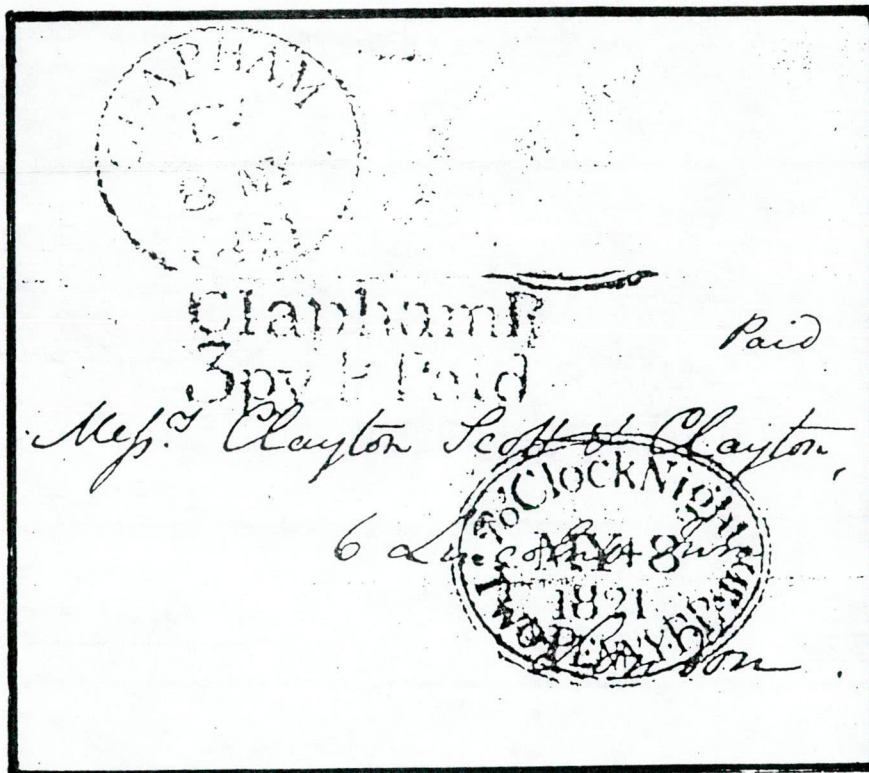 CLAPHAM
8 MY
1821
Clapham R
3py P Paid
Paid
Messrs Clayton Scott & Clayton,
6 Lincoln's Inn
London.
7 o'Clock Night
MY + 8
1821
TWOPENNY POST